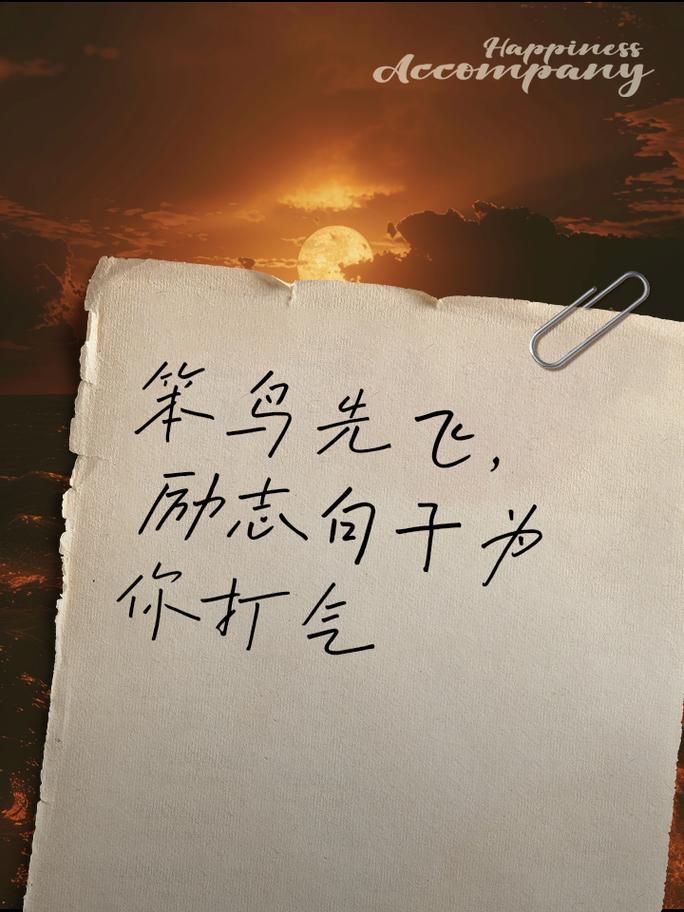 Happiness
Accompany
笨鸟先飞,
励志句子为
你打气